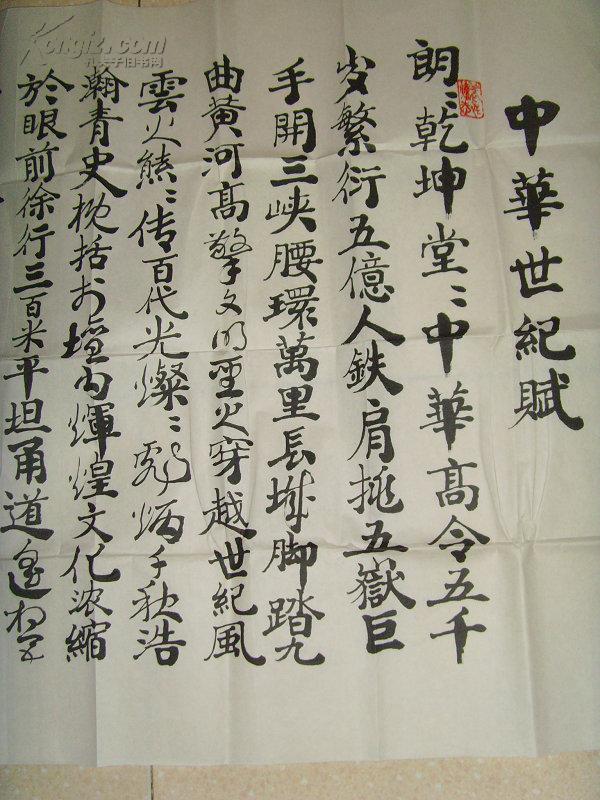 中華世紀賦
朗〻乾坤堂〻中華高令五千
岁繁衍五億人鉄肩挑五嶽巨
手開三峡腰環萬里長城脚踏九
曲黄河高擎文明聖火穿越世紀風
雲火熊〻传百代光燦〻彪炳千秋浩
瀚青史概括于壇内輝煌文化浓縮
於眼前徐行三百米平坦甬道
Kongfz.com
孔夫子旧书网